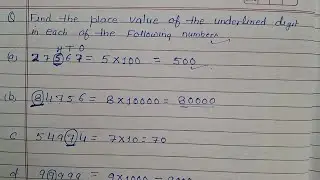 Q Find the place value of the underlined digit
in each of the Following numbers
H T O
(a) 27567 = 5×100 = 500
(b) 84756 = 8×10000 = 80000
c 54974 = 7×10 = 70
d 99999 = 9×1000 =